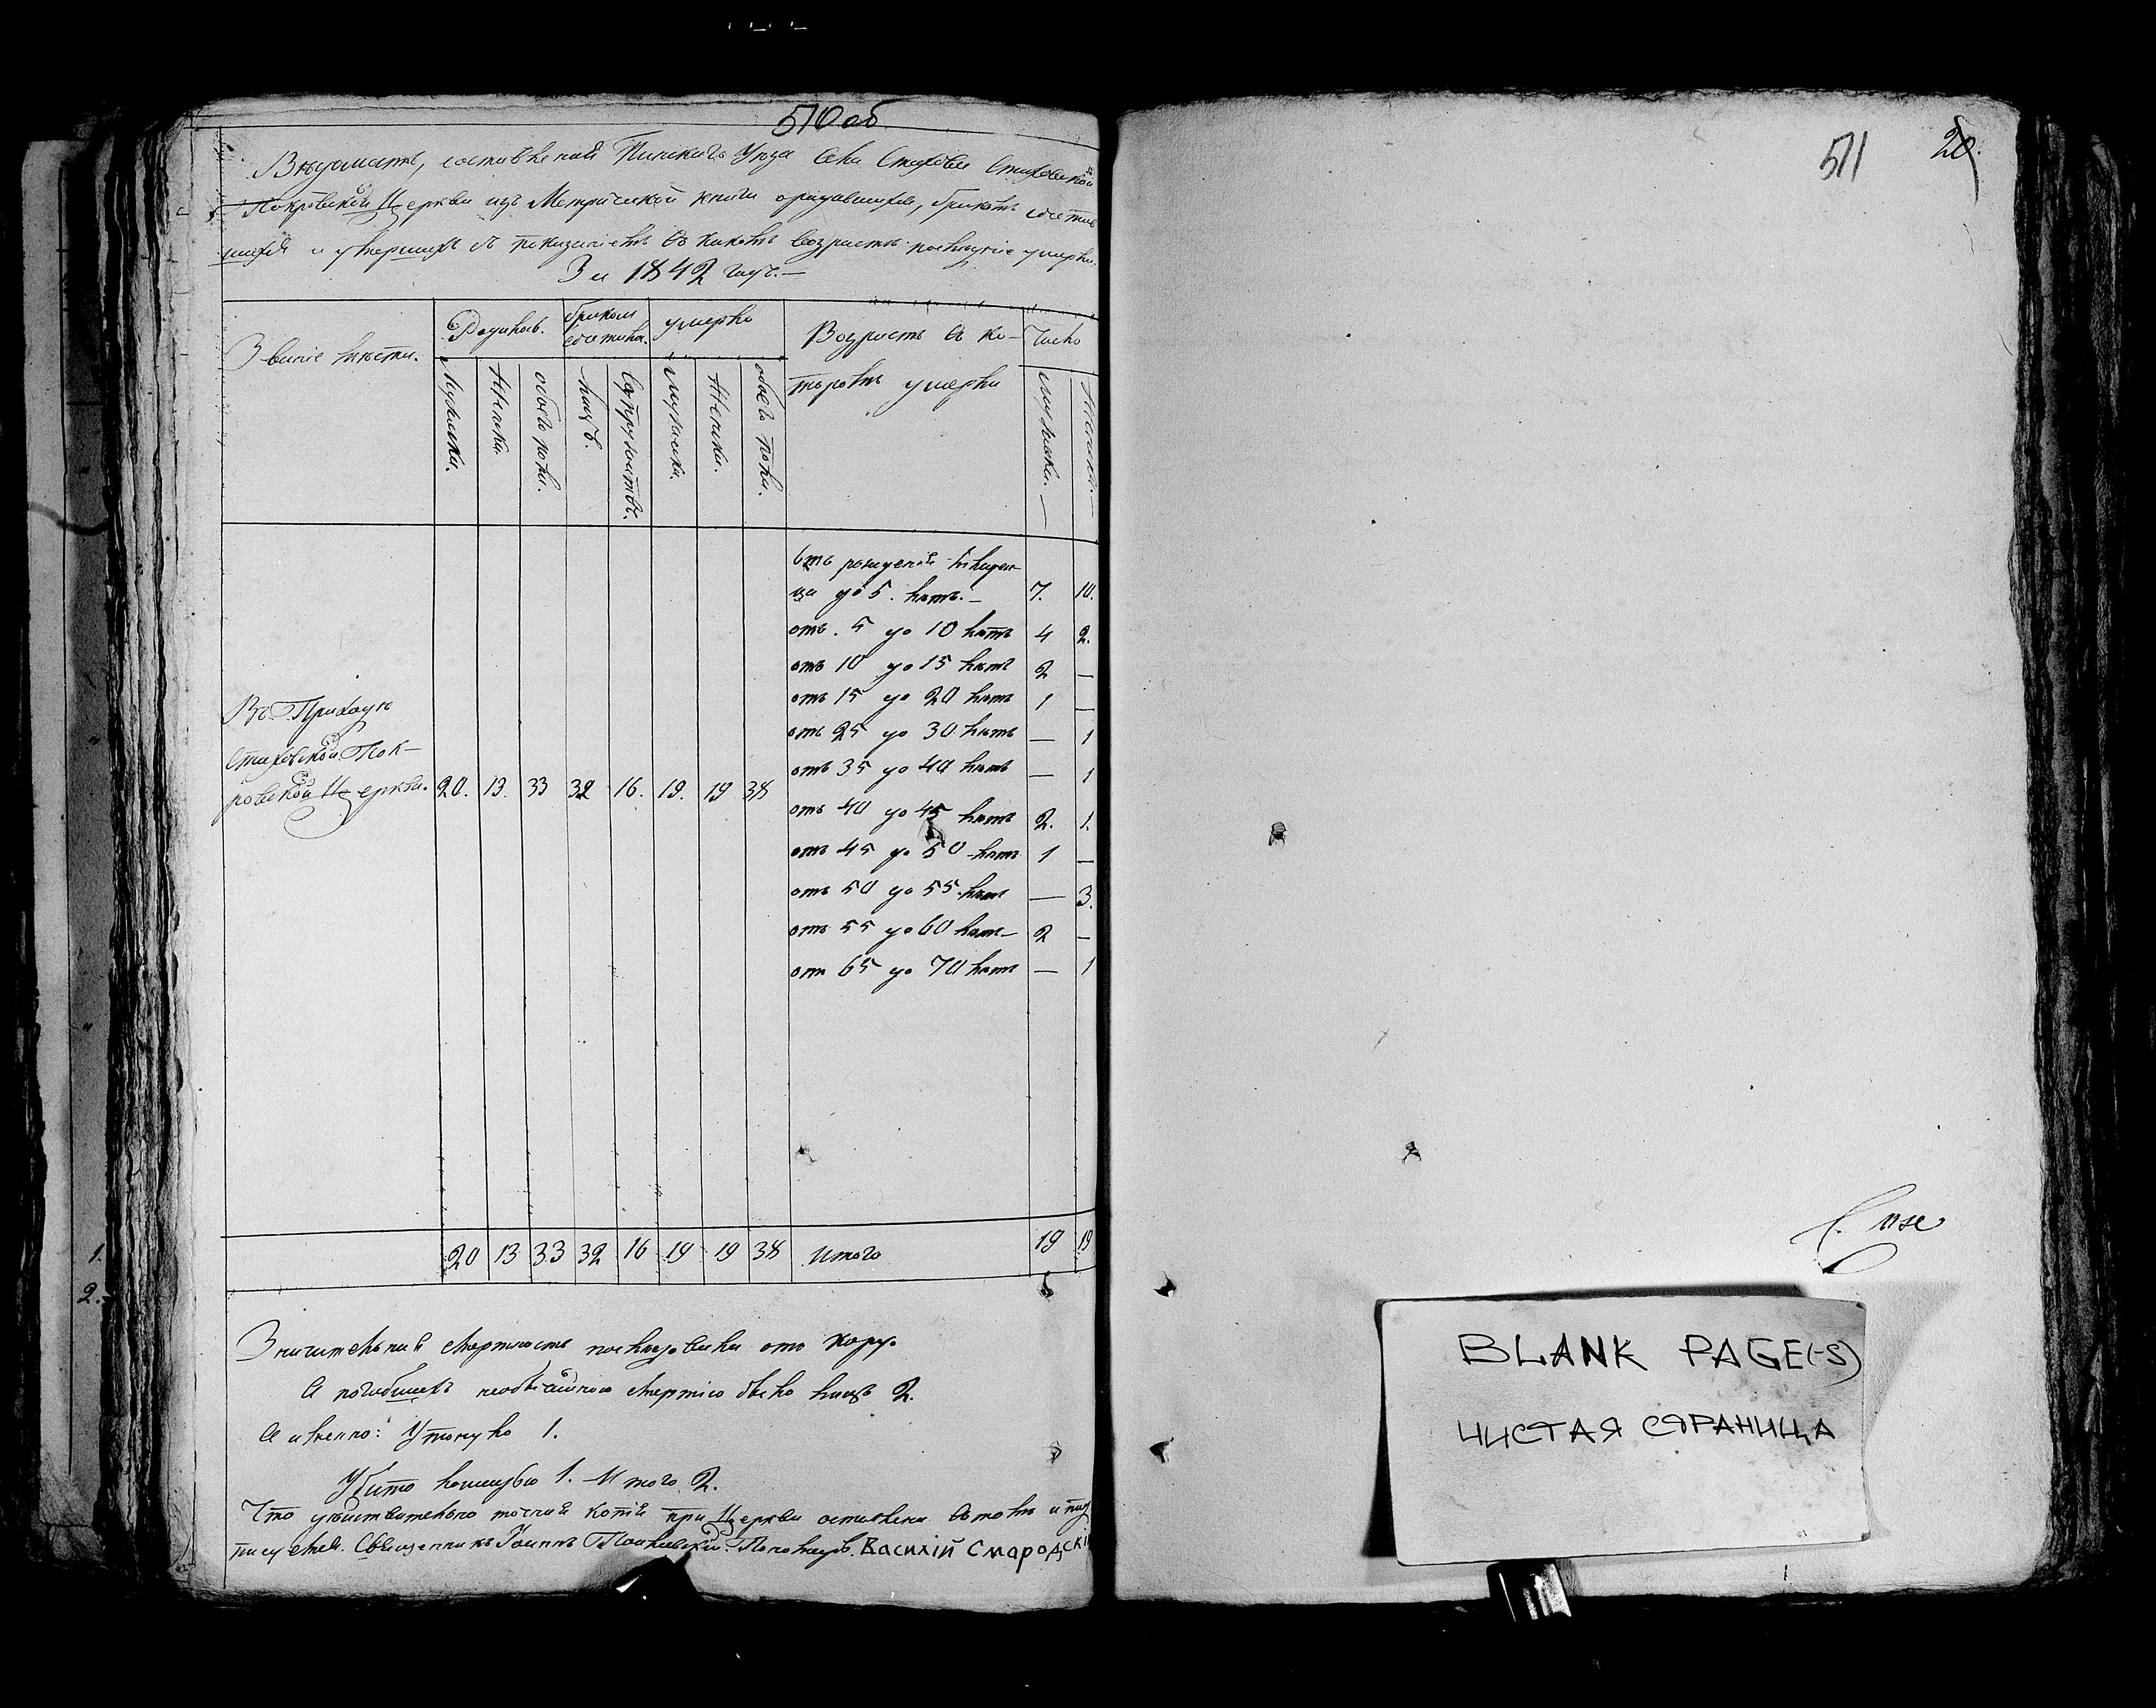 510 об
Вѣдомость, составленная Пинскаго Уѣзда села Стахова Стаховской
Покровской Церкви изъ Метрической книги о родившихся, бракомъ сочетав
шихся и умершихъ съ показаніемъ въ какомъ возрастѣ послѣдніе умерли.
За 1842 годъ.—
Званіе мѣста.
Родилось.
бракомъ
сочеталось.
умерло
Возрастъ въ ко-
торомъ умерли
Число
Мужска.
Женска.
обоего пола.
лицъ.
Супружествъ.
Мужеска.
Женска.
обоего пола.
мужска.—
Женска.—
отъ рожденія младен-
ца до 5. лѣтъ.— 7. 10.
отъ. 5 до 10 лѣтъ 4 2.
отъ 10 до 15 лѣтъ 2 —
отъ 15 до 20 лѣтъ 1 —
отъ 25 до 30 лѣтъ — 1
отъ 35 до 40 лѣтъ — 1
отъ 40 до 45 лѣтъ 2. 1.
отъ 45 до 50 лѣтъ 1 —
отъ 50 до 55 лѣтъ — 3.
отъ 55 до 60 лѣтъ— 2 —
отъ 65 до 70 лѣтъ — 1
Въ Приходѣ
Стаховской Пок-
ровской Церкви. 20. 13. 33 32 16. 19. 19 38
20 13 33 32 16 19 19 38 Итого 19 19
Значительная смертность послѣдовала отъ кору.
А погибшихъ необычайною смертію было лицъ 2.
А именно: Утонуло 1.
Убито лошадью 1. Итого 2.
Что дѣйствительно точная копія при Церкви оставлена въ томъ и под
писуемся. Священникъ Іоаннъ Пономарь Василій Смародскій
511
20.
BLANK PAGE(-S)
ЧИСТАЯ СТРАНИЦА